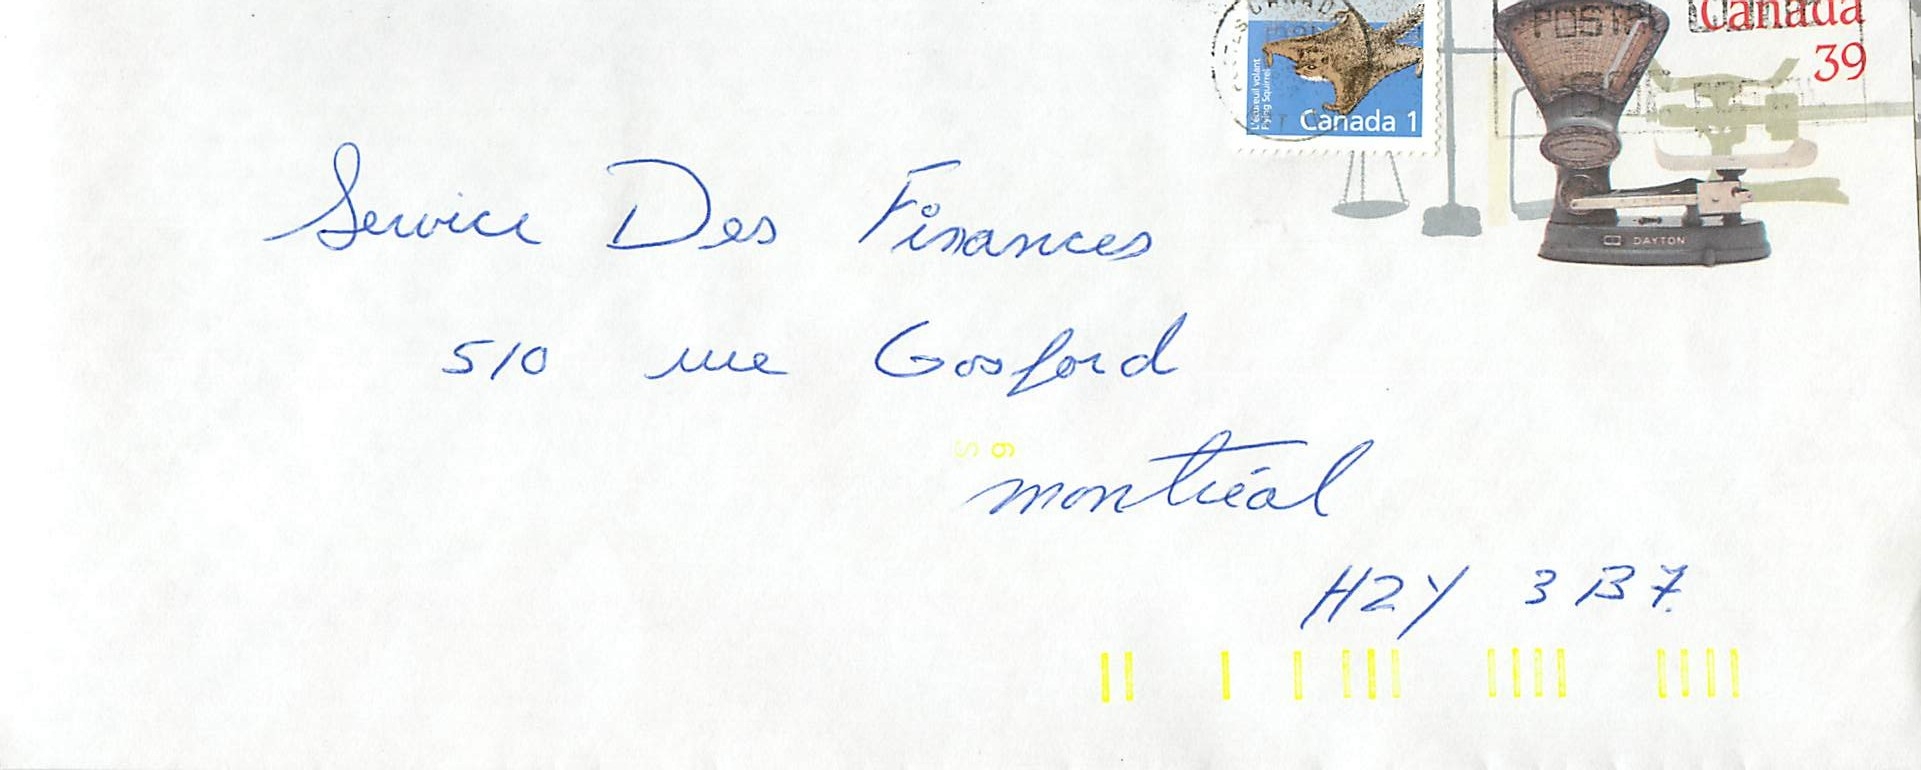 Canada
39
L'écureuil volant
Flying Squirrel
Canada 1
DAYTON
Service Des Finances
510 rue Gosford
Montréal
H2Y 3B7